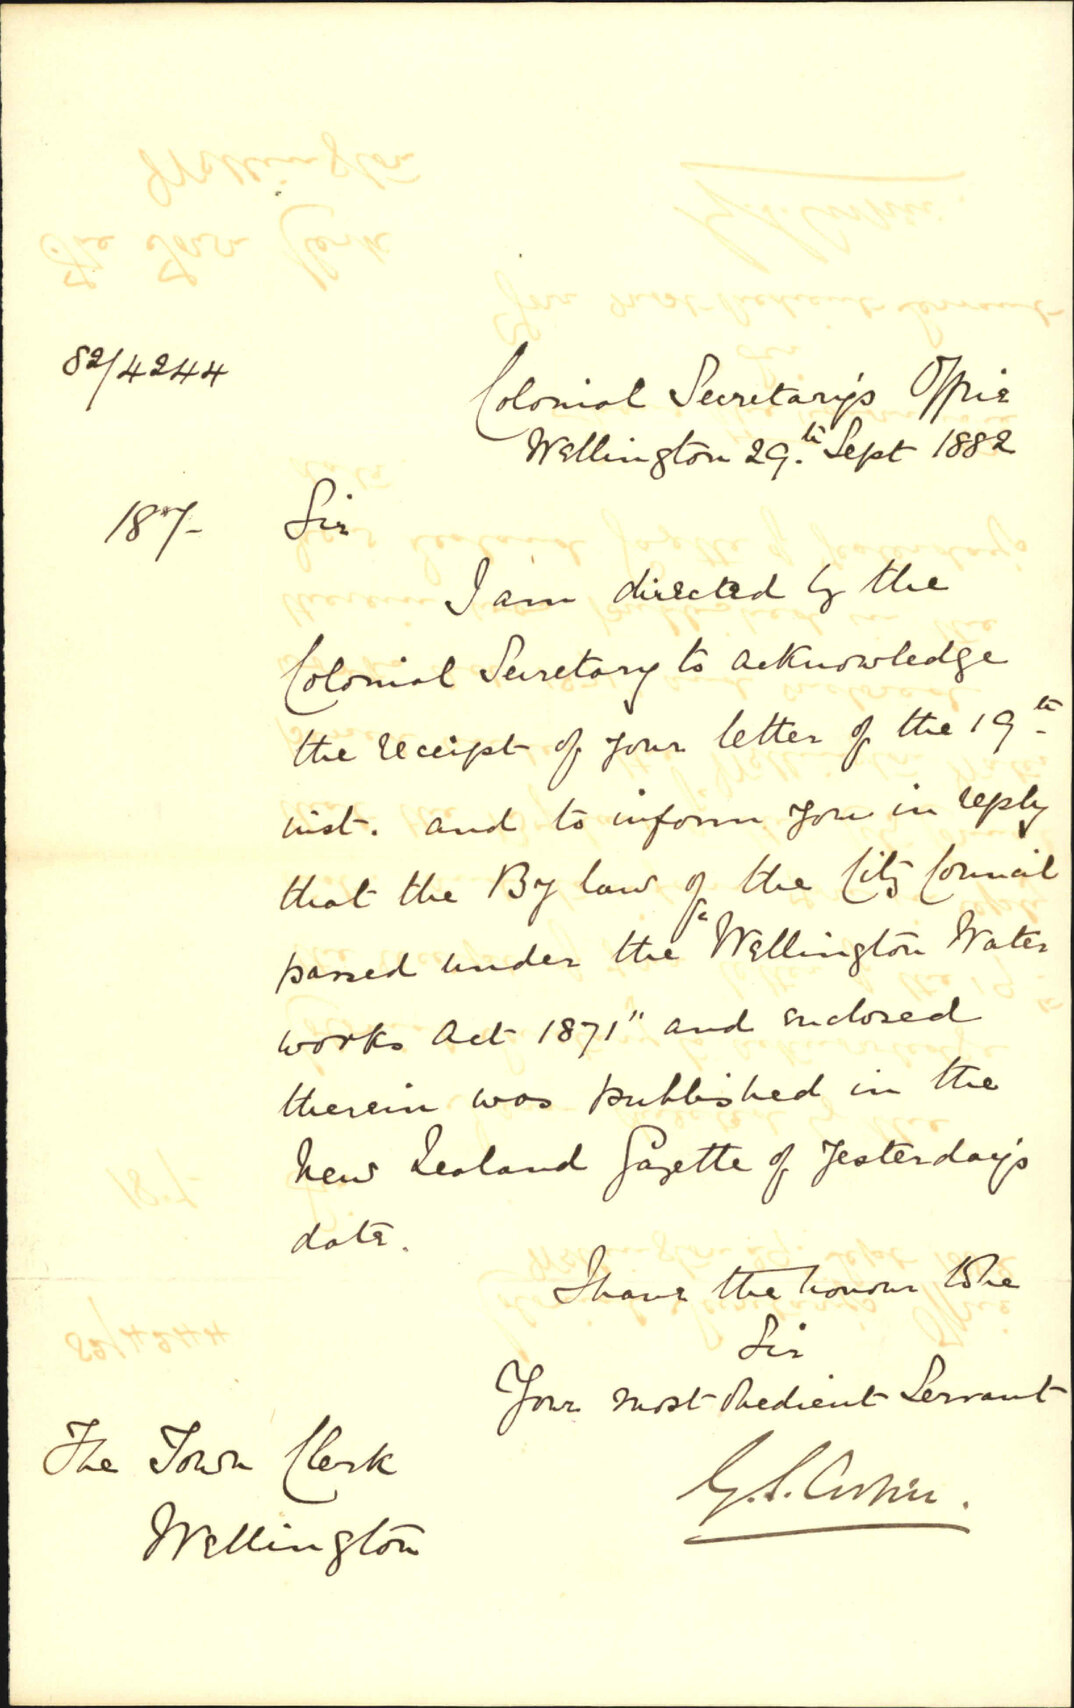 82/4244
Colonial Secretary's Office
Wellington 29.th Sept 1882
187-
Sir
I am directed by the
Colonial Secretary to acknowledge
the receipt of your letter of the 19th
inst. and to inform you in reply
that the By law of the City Council
passed under the "Wellington Water
works Act 1871" and enclosed
therein was published in the
New Zealand Gazette of yesterday's
date.
I have the honour to be
Sir
Your most obedient Servant
G. S. Cooper.
The Town Clerk
Wellington